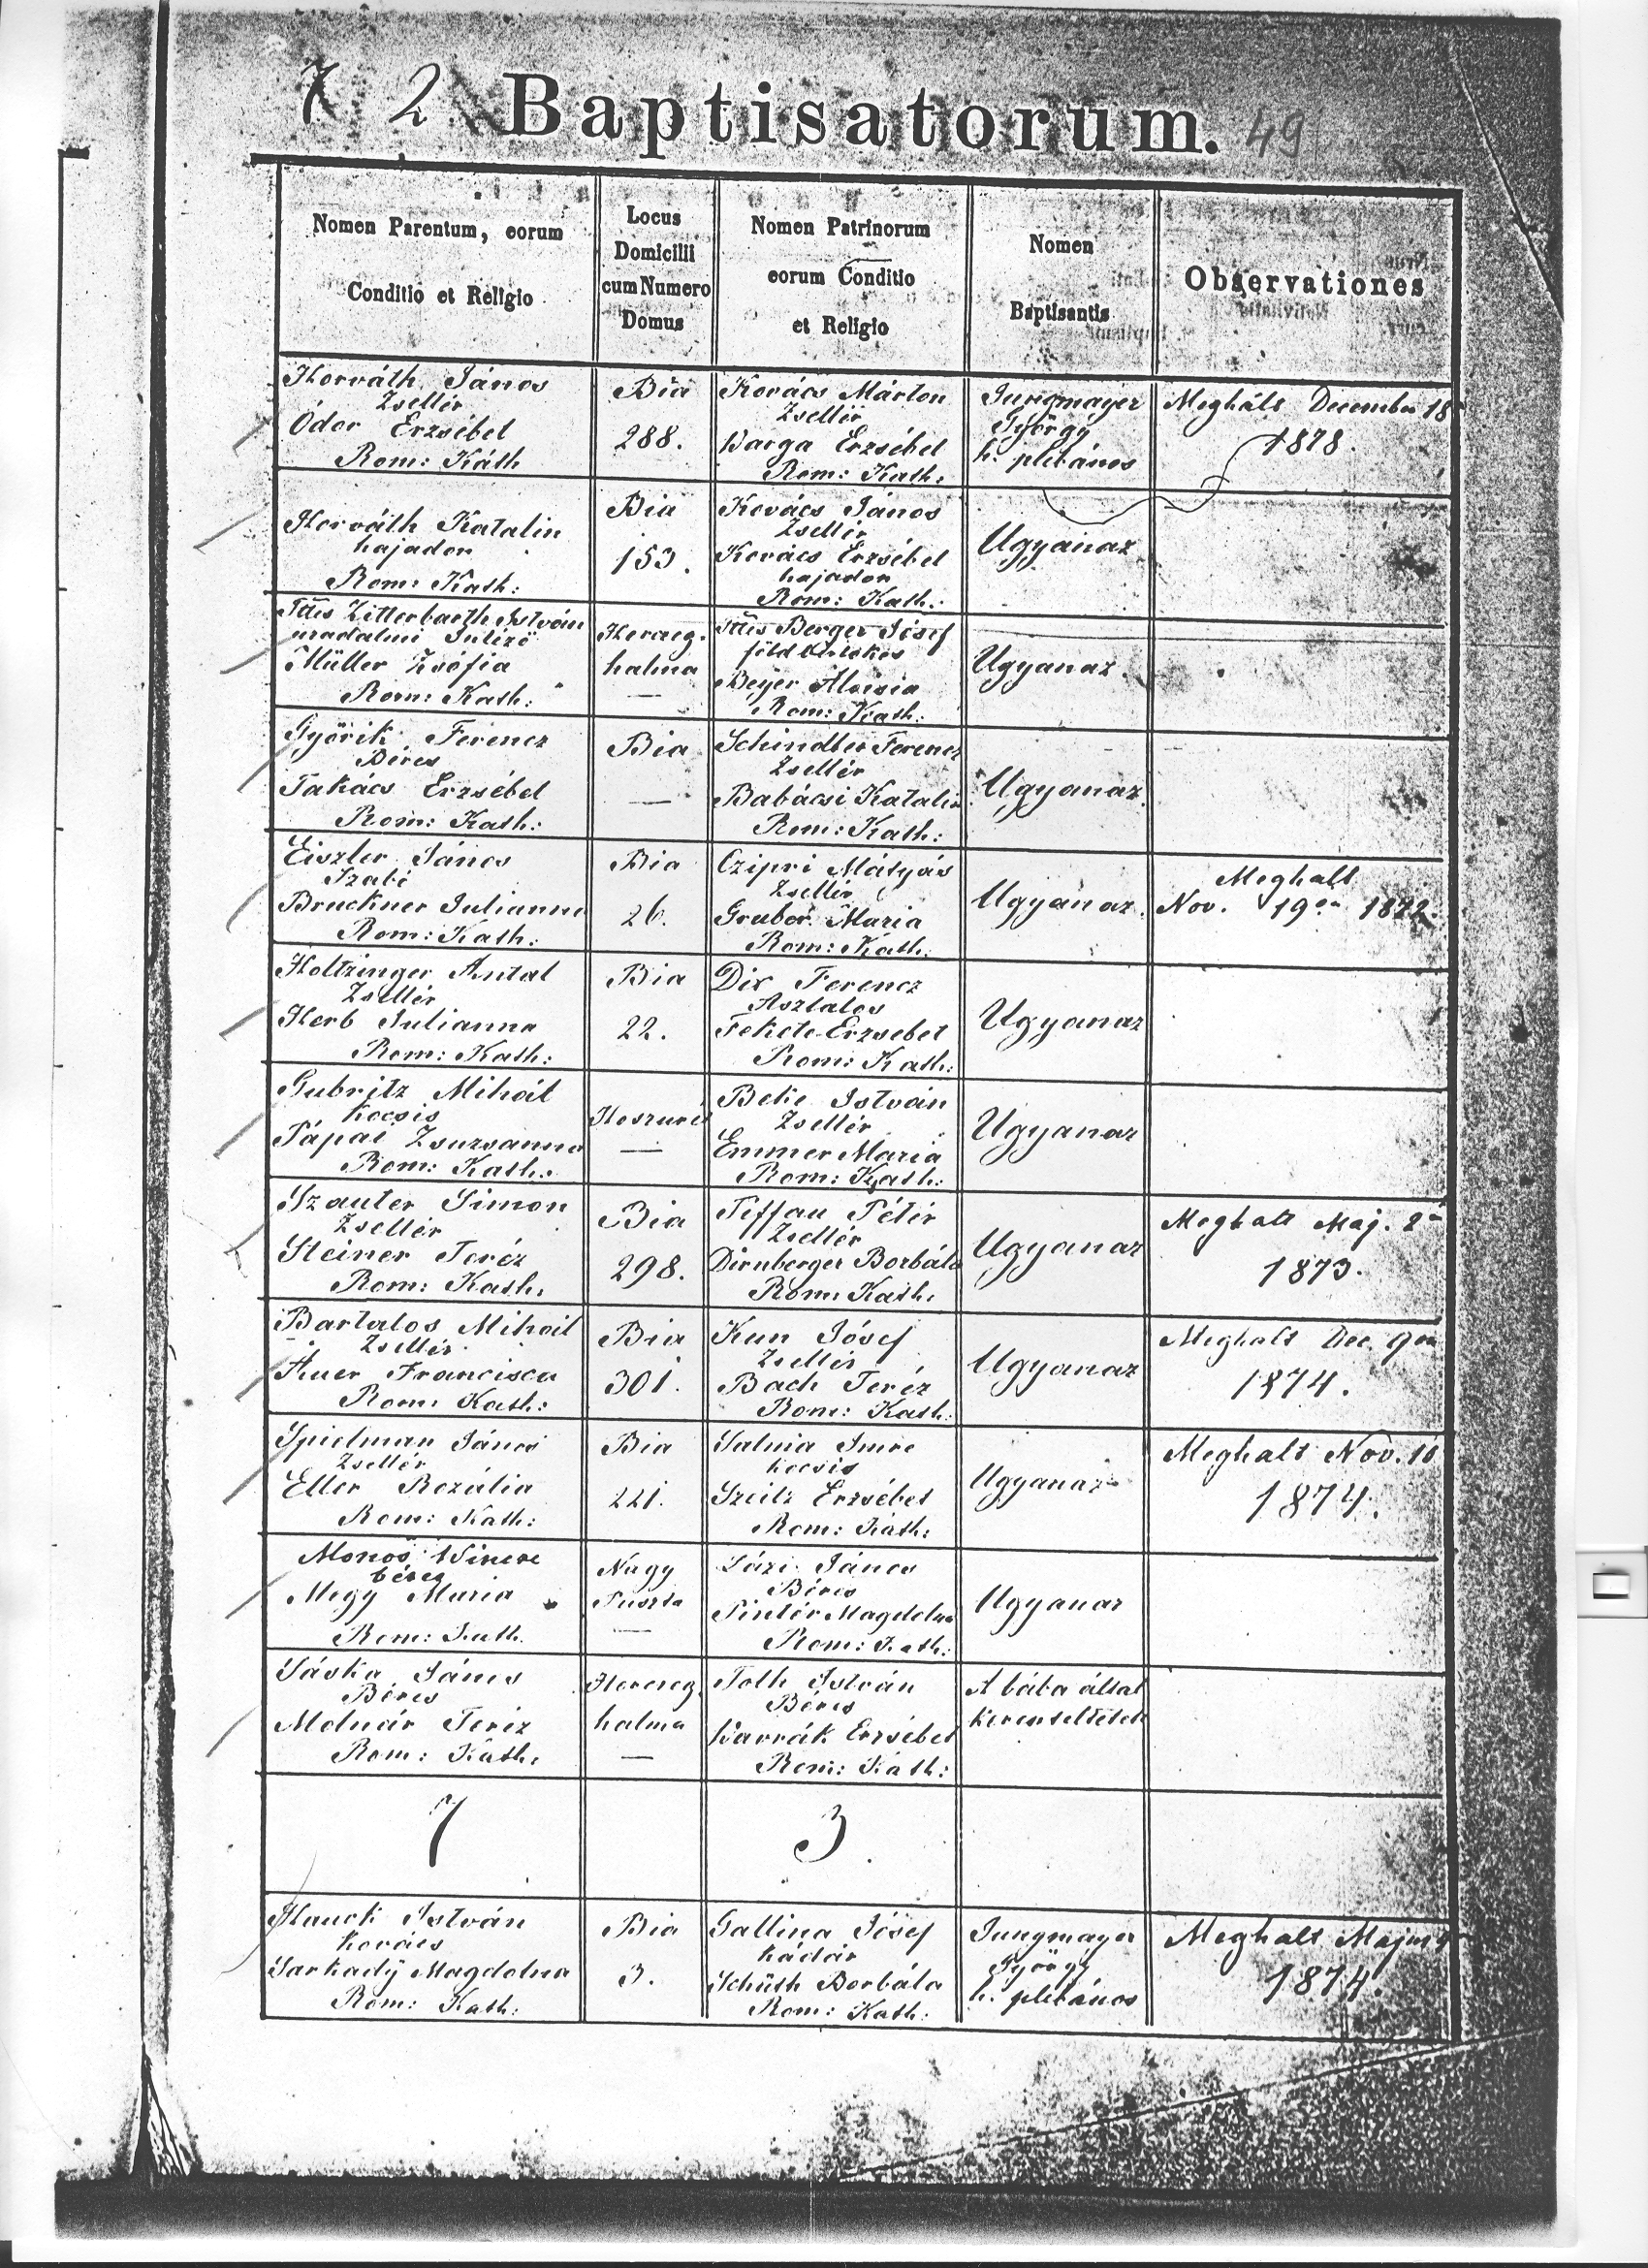 7 2 Baptisatorum. 49
Nomen Parentum, eorum
Conditio et Religio
Locus
Domicilii
cum Numero
Domus
Nomen Patrinorum
eorum Conditio
et Religio
Nomen
Baptisantis
Observationes
Horváth János
Zsellér
Ódor Erzsébet
Rom: Káth
Bia
288.
Kovács Márton
Zsellér
Varga Erzsébet
Rom: Kath:
Jungmayer
György
h. plebános
Meghalt December 18
1878.
Horváth Katalin
hajadon
Rom: Kath:
Bia
153.
Kovács János
Zsellér
Kovács Erzsébet
hajadon
Rom: Kath:
Ugyanaz
Ttts Zitterbarth István
uradalmi Intéző
Müller Zsófia
Rom: Kath:
Herczeg.
halma
—
Ttts Berger Jósef
föld birtokos
Beyer Aloisia
Rom: Kath:
Ugyanaz.
Györik Ferencz
Béres
Takács Erzsébet
Rom: Kath:
Bia
—
Schindler Ferencz
Zsellér
Babácsi Katalin
Rom: Kath:
Ugyanaz.
Eiszler János
Szabó
Bruckner Julianna
Rom: Kath:
Bia
26.
Czipri Mátyás
Zsellér
Gruber Maria
Rom: Kath:
Ugyanaz.
Meghalt
Nov. 19én 1872.
Holtzinger Antal
Zsellér
Herb Julianna
Rom: Kath:
Bia
22.
Dix Ferencz
Asztalos
Fekete Erzsebet
Rom: Kath:
Ugyanaz
Gubritz Mihál
Kocsis
Pápai Zsuzsanna
Rom: Kath:
—
Beke István
Zsellér
Emmer Maria
Rom: Kath:
Ugyanaz
Szauter Simon
Zsellér
Steiner Teréz
Rom: Kath:
Bia
298.
Tiffau Péter
Zsellér
Dirnberger Borbála
Rom: Kath:
Ugyanaz
Meghalt Maj. 2
1873.
Bartalos Mihail
Zsellér
Auer Francisca
Rom: Kath:
Bia
301.
Kun Jósef
Zsellér
Bach Teréz
Rom: Kath:
Ugyanaz
Meghalt Dec. 9én
1874.
Spielman János
Zsellér
Eller Rozália
Rom: Kath:
Bia
221.
Salma Imre
kocsis
Szeitz Erzsébet
Rom: Kath:
Ugyanaz
Meghalt Nov. 10
1874.
Monos Vincze
béres
Megy Maria
Rom: Kath.
Nagy
Puszta
—
Lázi János
Béres
Pintér Magdolna
Rom: Kath:
Ugyanaz
Sávka János
Béres
Molnár Teréz
Rom: Kath:
Herczeg.
halma
—
Toth István
Béres
Erzsébet
Rom: Kath:
A bába által
kereszteltetett
7
3.
Hauck István
Kovács
Sarkady Magdolna
Rom: Kath:
Bia
3.
Gallina Jósef
kádár
Schüth Borbála
Rom: Kath:
Jungmayer
György
h. plebános
Meghalt Majus 9
1874.